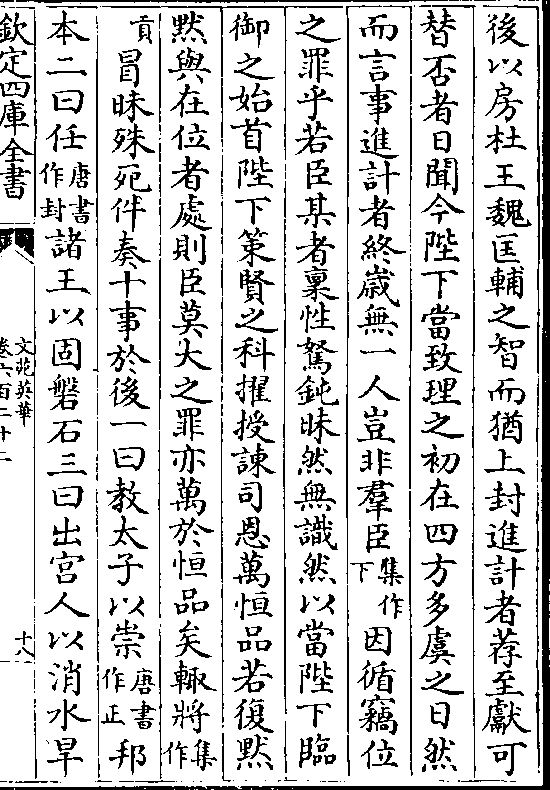 後以房杜王魏匡輔之智而猶上封進計者荐至獻可
替否者日聞今陛下當致理之初在四方多虞之日然
而言事進計者終歲無一人豈非羣臣集作下因循竊位
之罪乎若臣某者稟性駑鈍昧然無識然以當陛下臨
御之始首陛下策賢之科擢授諫司恩萬恒品若復默
默與在位者處則臣莫大之罪亦萬於恒品矣輙將集作
貢冒昧殊死件奏十事於後一曰教太子以崇唐書作正邦
本二曰任唐書作封諸王以固磐石三曰出宮人以消水旱
欽定四庫全書
文苑英華
卷六百二十二
十八